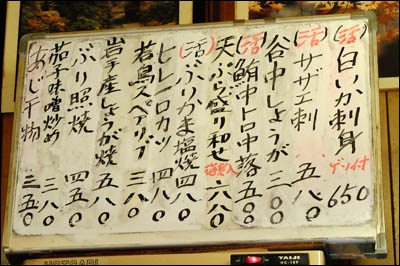 (活)白いか刺身 ゲソ付 650
(活)サザエ刺 五八〇
谷中しょうが 三〇〇
(活)鮪中トロ中落 五〇〇
天ぷら盛り和せ 海老入 六八〇
(活)ぶりかま塩焼 四八〇
ヒレ一口カツ 四八〇
若鳥スペアリブ 三八〇
岩手産しょうが焼 五八〇
ぶり照焼 四五〇
茄子味噌炒め 三八〇
あじ干物 三五〇
TAIJI